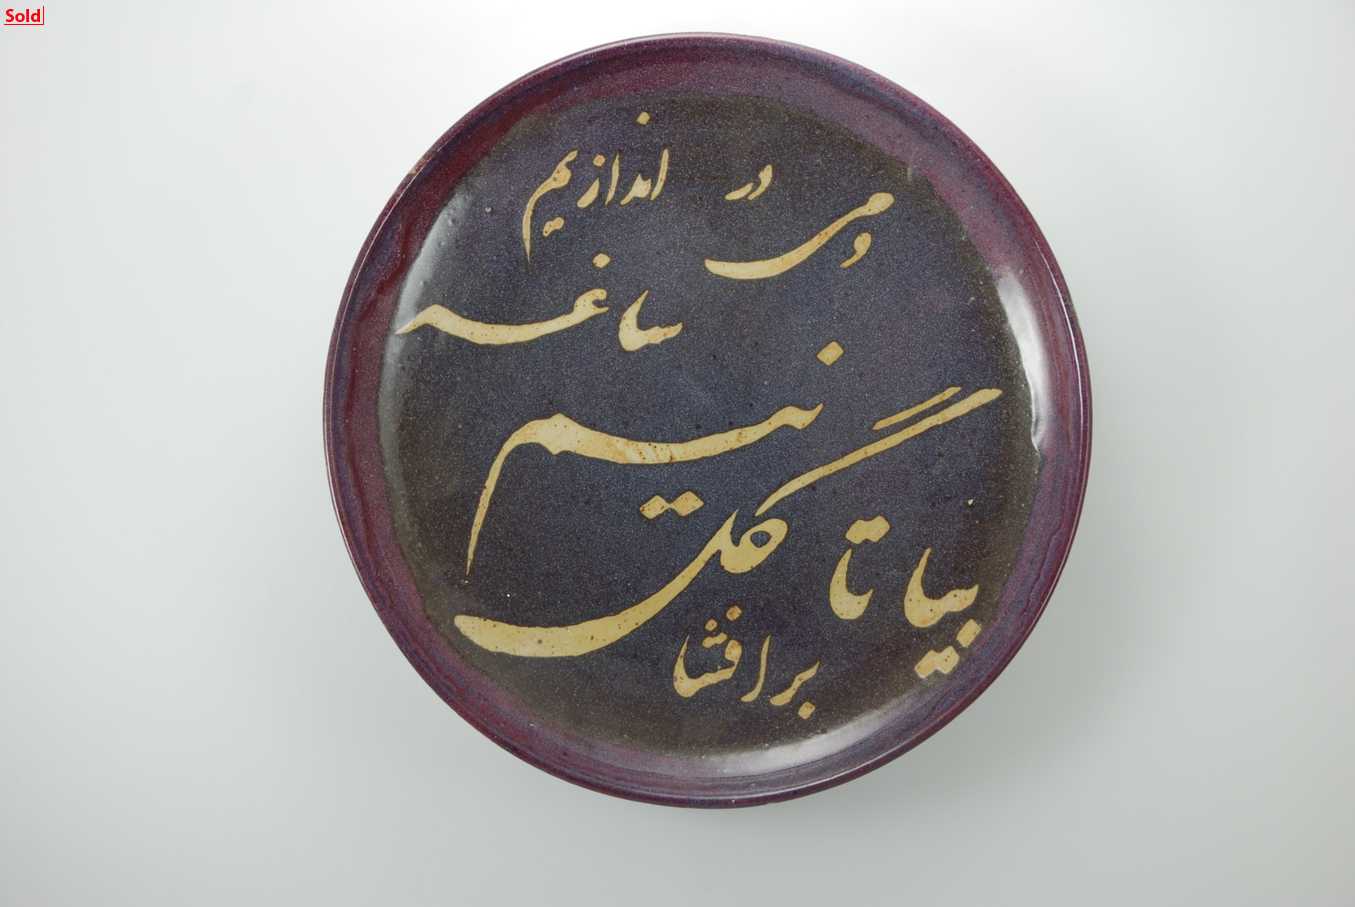 Sold
بیا تا گل
برافشا
نیم
و می در
ساغر
اندازیم